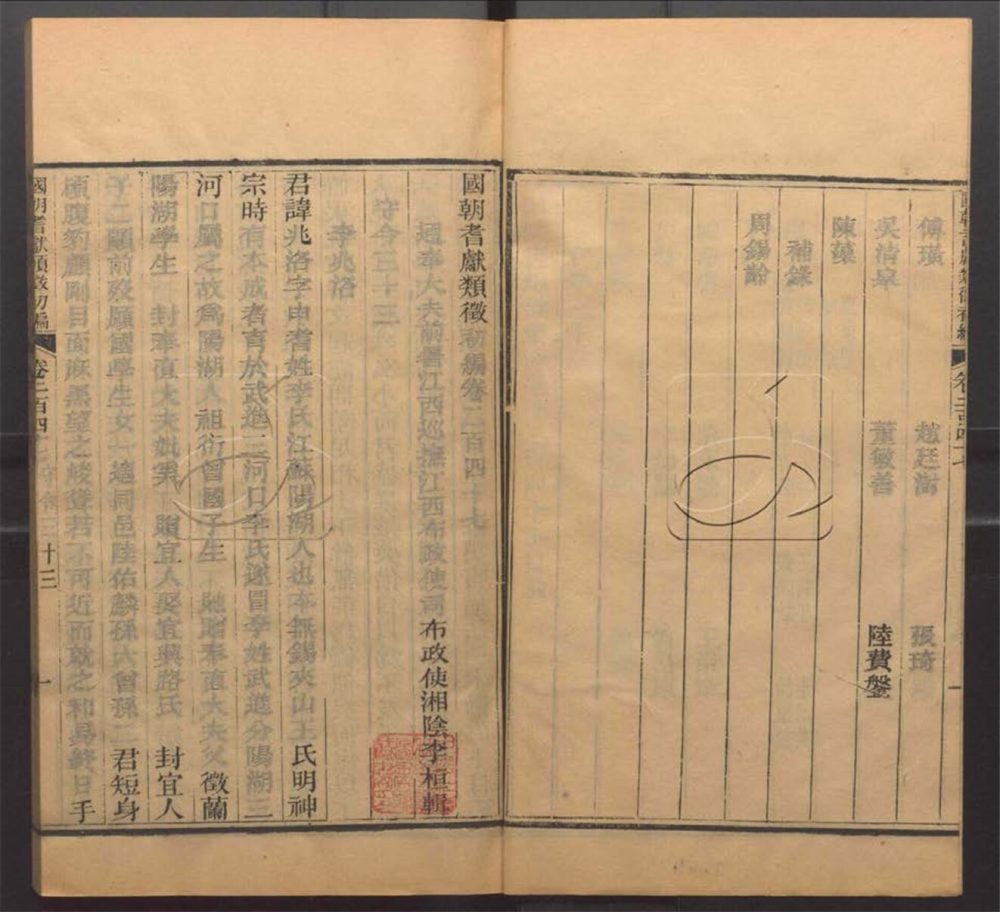 傅璜　趙廷　張琦
吳清皐　董敏善　陸費鍌
陳藻
補錄
周錫齡
國朝耆獻類徵初編卷二百四十七
通奉大夫前署江西巡撫江西布政使司布政使湘陰李桓輯
守令三十三
李兆洛
君諱兆洛字申耆姓李氏江蘇陽湖人也本無錫夾山王氏明神
宗時有本成者育於武進三河口李氏遂冒李姓武進分陽湖三
河口屬之故爲陽湖人祖衍曾國子生　貤贈奉直大夫父徵蘭
陽湖學生　封奉直大夫妣　贈宜人娶宜興路氏　封宜人
子二顒前歿願國學生女一適同邑陸佑麟孫六曾孫二君短身
碩腹豹顱剛目面麻黑望之峻聳若不可近而就之和易終日手
國朝耆獻類徵初編　卷二百四十七　守令三十三　一